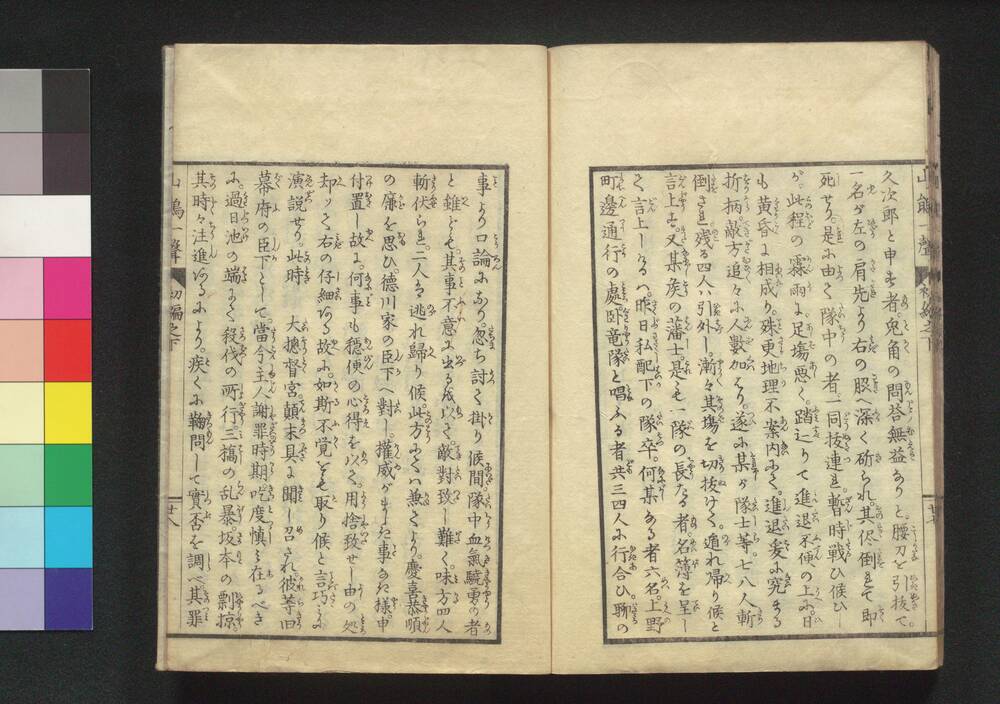 久次郎と申す者。兎角の問答無益なりと。腰刀を引抜て。
一名が左の肩先より右の股へ深く斫られ。其侭倒れて即
死せり。是に由て隊中の者一同抜連れ。暫時戦ひ候ひし
が。此程の霖雨に。足場悪く。踏辷りて進退不便の上に。日
も黄昏に相成り。殊更地理不案内にて。進退爰に究まる
折柄。敵方追々に人数加はり。遂に某が隊士等。七八人斬
倒され。残る四人ハ引外し。漸々其場を切抜けて。遁れ帰り候と
言上す。又某矦の藩士。是も一隊の長たる者。名簿を呈し
て。言上しけるハ。昨日私配下の隊卒。何某なる者六名。上野
町邊通行の處。卧竜隊と唱ふる者共三四人に行合ひ。聊の
山鵑一聲
初編之下
廿七
事より口論に及り。忽ち討て掛り候間。隊中血氣驍勇の者
と雖ども。其事不意に出るを以て。敵對致し難く。味方四人
斬伏られ。二人ハ逃れ歸り候。此方にてハ兼てより。慶喜恭順
の廉を思ひ。德川家の臣下へ對し。權威がましき事なき樣申
付置し故に。何事も穏便の心得を以て。用捨致せし由の処
却ッて右の仔細なる故に。如斯不覚をも取り候と言巧に
演説せり。此時
大摠督宮。顛末具に聞し召され。彼等旧
幕府の臣下として。當今主人謝罪時期。吃度慎ミ在るべき
に。過日池の端にて。殺伐の所行三搞の乱暴。坂本の剽掠。
其時々注進ありしにより。疾くに鞠問して實否を調べ。其罪
山鵑一聲
初編之下
廿八